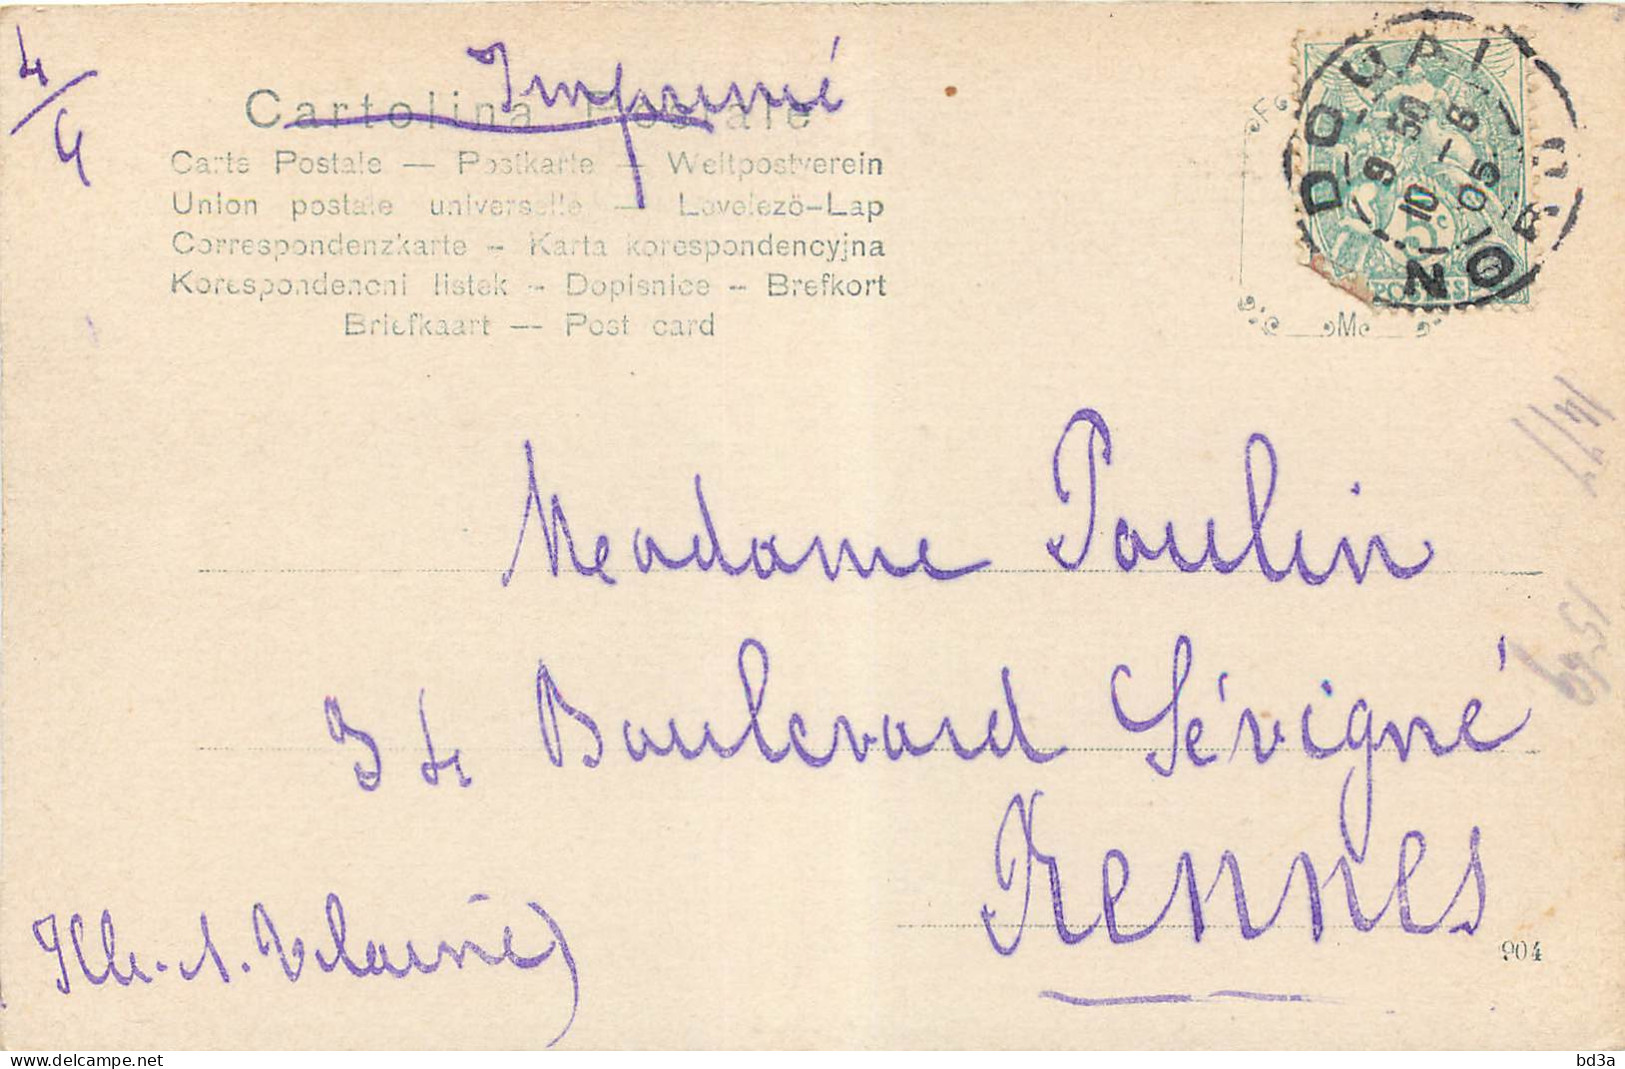 4/4
Imprimé
Cartolina Postale
Carte Postale — Postkarte — Weltpostverein
Union postale universelle — Levelezö-Lap
Correspondenzkarte - Karta korespondencyjna
Korespondencni listek - Dopisnice - Brefkort
Briefkaart — Post card
DOUAI
9 50
10 - 8
05
NORD
5c
POSTES
M
Madame Poulin
34 Boulevard Sévigné
Rennes
Ille-s-Vilaine)
904
1477
1569
bd3a